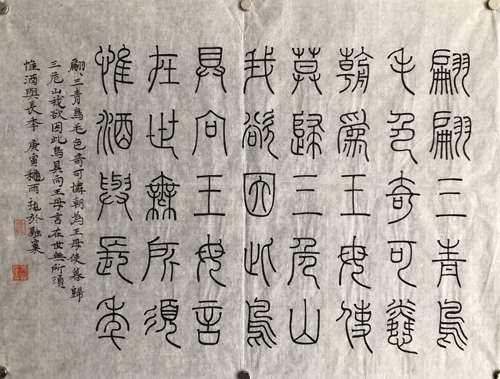 翩翩三青鳥
毛色奇可憐
朝爲王母使
莫歸三危山
我欲因此鳥
具向王母言
在世無所須
惟酒與長年
翩〻三青鳥毛色奇可憐朝為王母使暮歸
三危山我欲因此鳥具向王母言在世無所須
惟酒與長年 庚寅 雨 於融